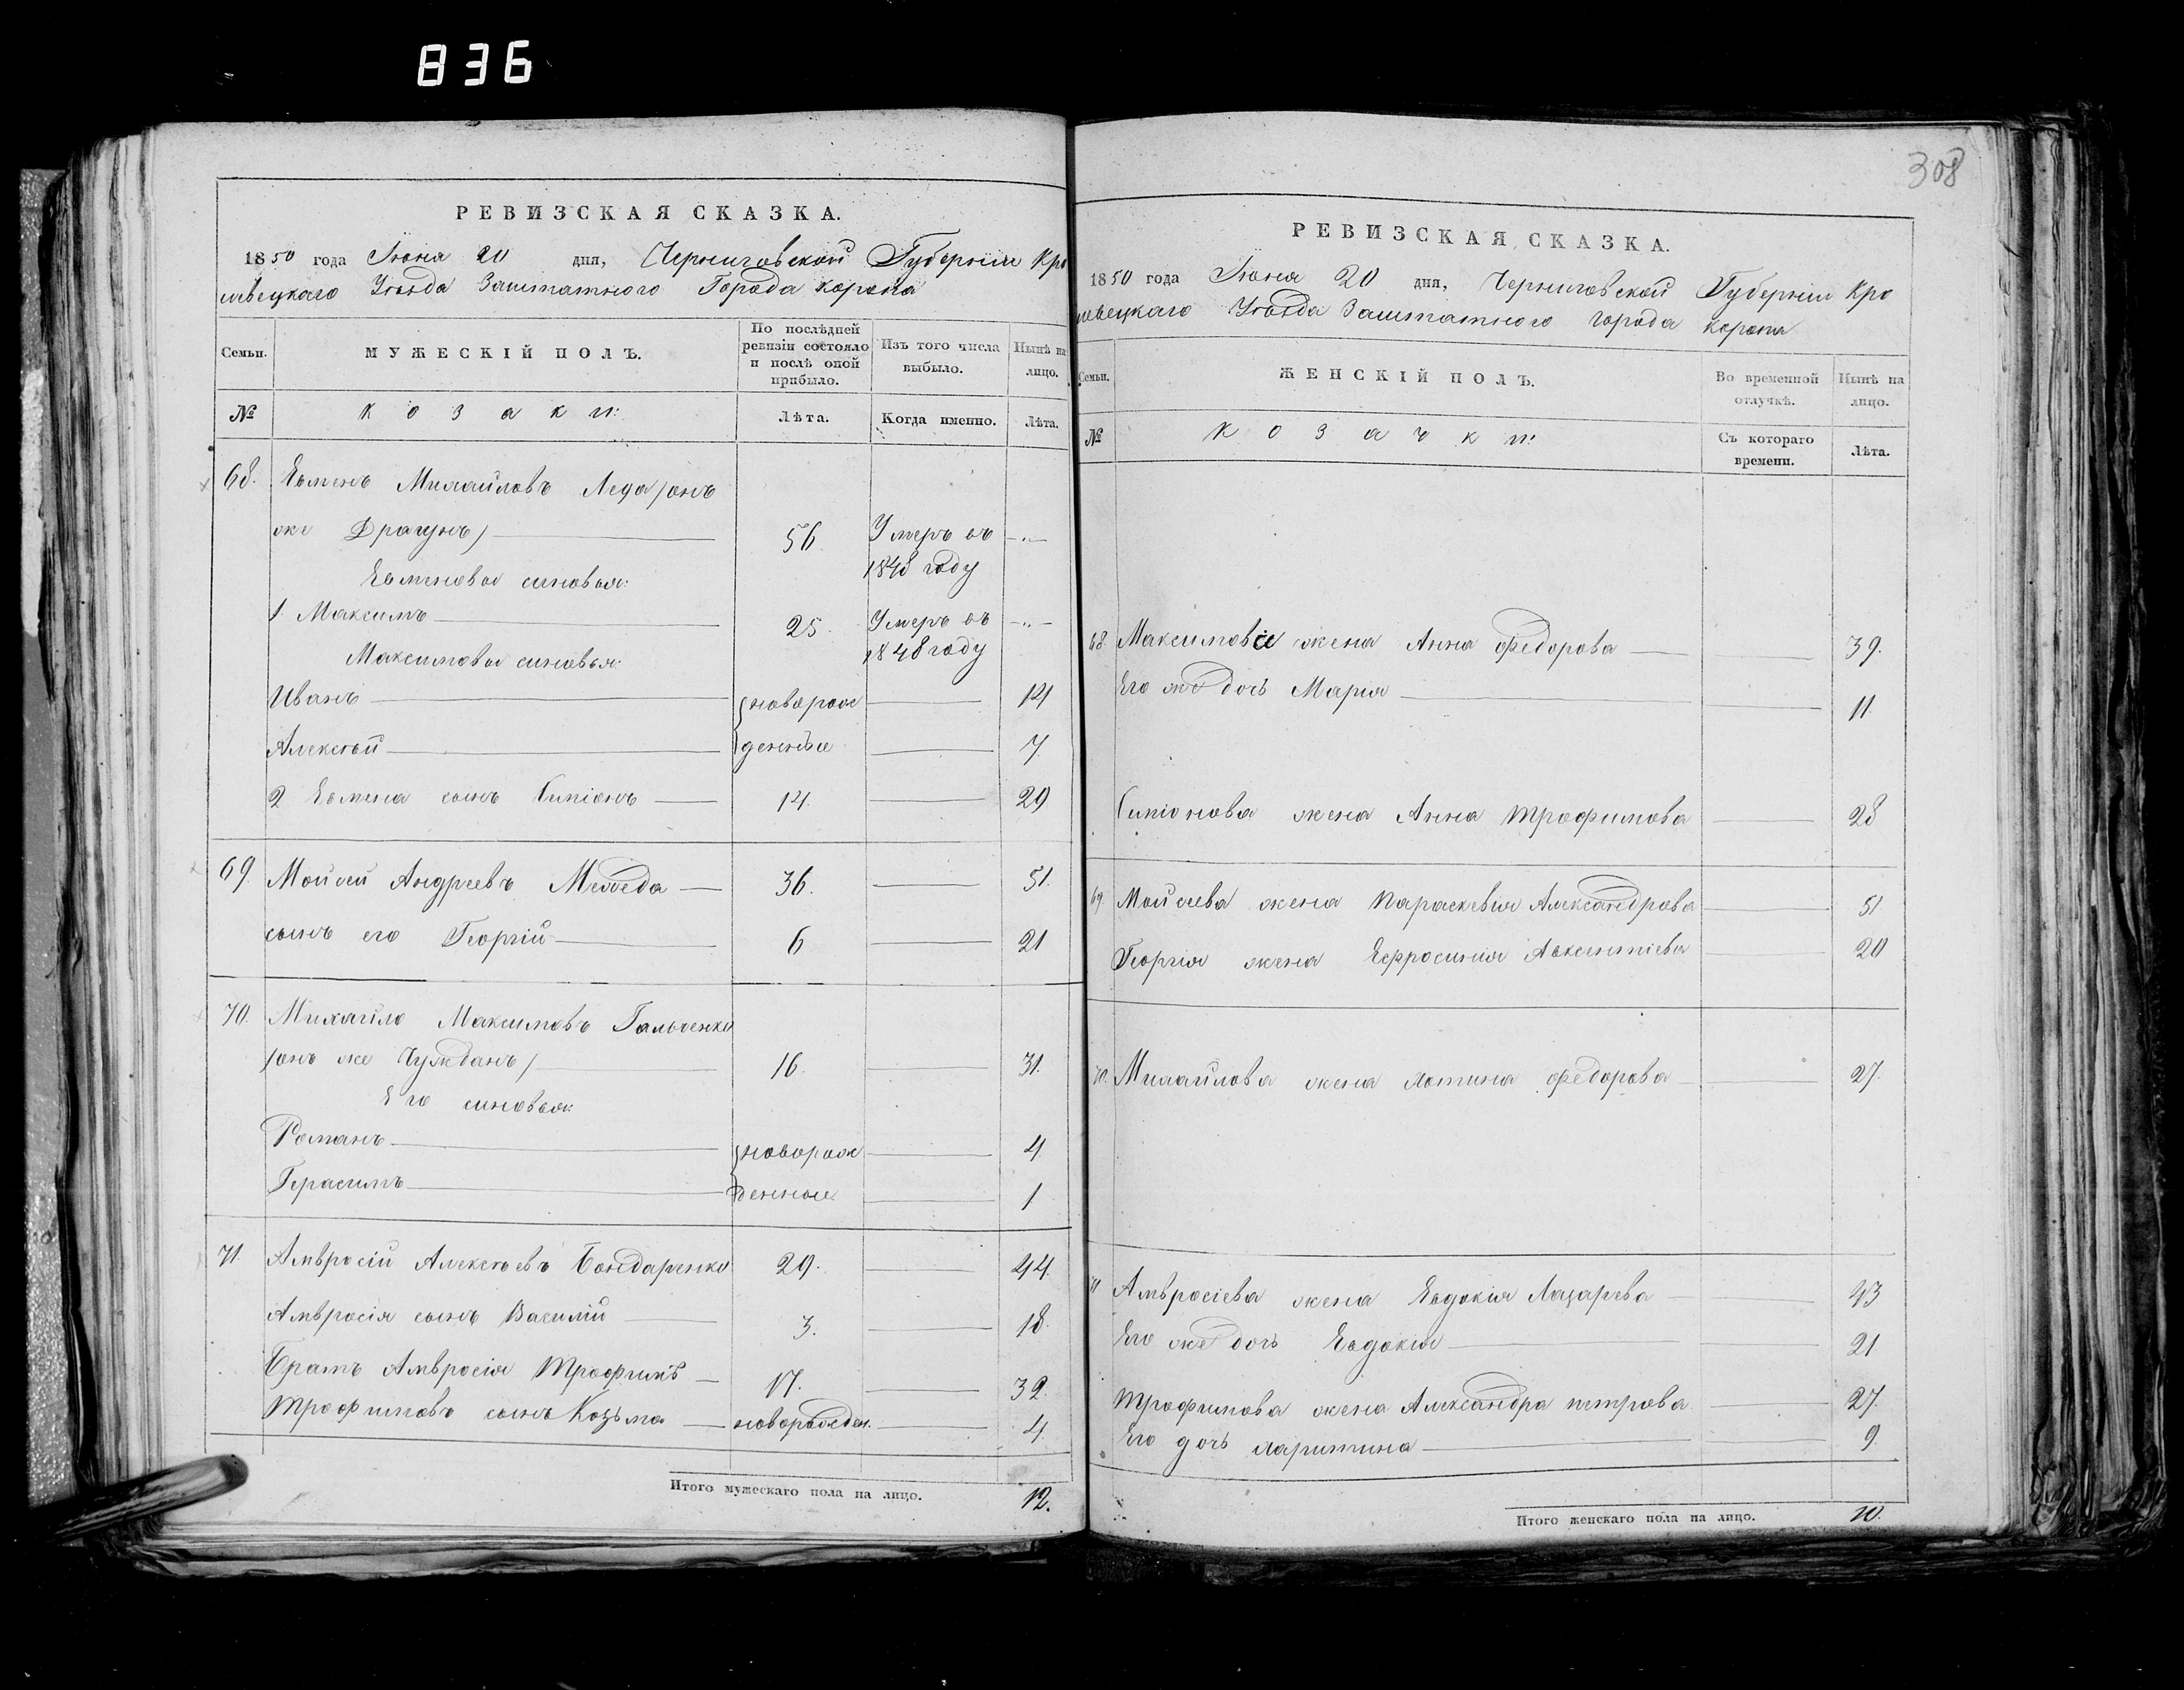 836
308
РЕВИЗСКАЯ СКАЗКА.
1850 года Іюня 20 дня, Черниговской Губерніи Кро
левецкаго Уѣзда Заштатного Города Коропа
Семьи.
МУЖЕСКІЙ ПОЛЪ.
По послѣдней ревизіи состояло и послѣ оной прибыло.
Изъ того числа выбыло.
Нынѣ на лицо.
№
Козаки:
Лѣта.
Когда именно.
Лѣта.
68. Евменъ Михайловъ Леда /онъ
же Драгунъ/ 56. Умеръ въ 1848 году -"-
Евменовы синовья:
1 Максимъ 25. Умеръ въ 1848 году -"-
Максимовы синовья:
Иванъ новорож 14
Алексѣй денные 7.
2 Евмена сынъ Симіонъ 14. 29
69. Мойсей Андреевъ 36. 51.
сынъ его Георгій 6 21
70. Михайло Максимовъ Гальченко
/онъ же Чужданъ/ 16. 31.
Его синовья:
Романъ новорож 4
Герасимъ денные 1
71. Амвросій Алексѣевъ Бондаренко 29. 44
Амвросія сынъ Василій 3. 18
Братъ Амвросія Трофимъ 17. 32
Трофимовъ сынъ Козьма новорожден. 4
Итого мужескаго пола на лицо. 12.
РЕВИЗСКАЯ СКАЗКА.
1850 года Іюня 20 дня, Черниговской Губерніи Кро
левецкаго Уѣзда Заштатного города Коропа
Семьи.
ЖЕНСКІЙ ПОЛЪ.
Во временной отлучкѣ.
Нынѣ на лицо.
№
Козачки:
Съ котораго времени.
Лѣта.
68. Максимова жена Анна Федорова 39.
Его же дочь Марія 11.
Симіонова жена Анна Трофимова 28
69 Мойсеева жена Параскевія Александрова 51
Георгія жена Ефросинія Авксентіева 20
70. Михайлова жена Фотина Федорова 27.
71 Амвросіева жена Евдокія Лазарева 43
Его же дочь Евдокія 21
Трофимова жена Александра Петрова 27.
Его дочь Харитина 9
Итого женскаго пола на лицо. 10.